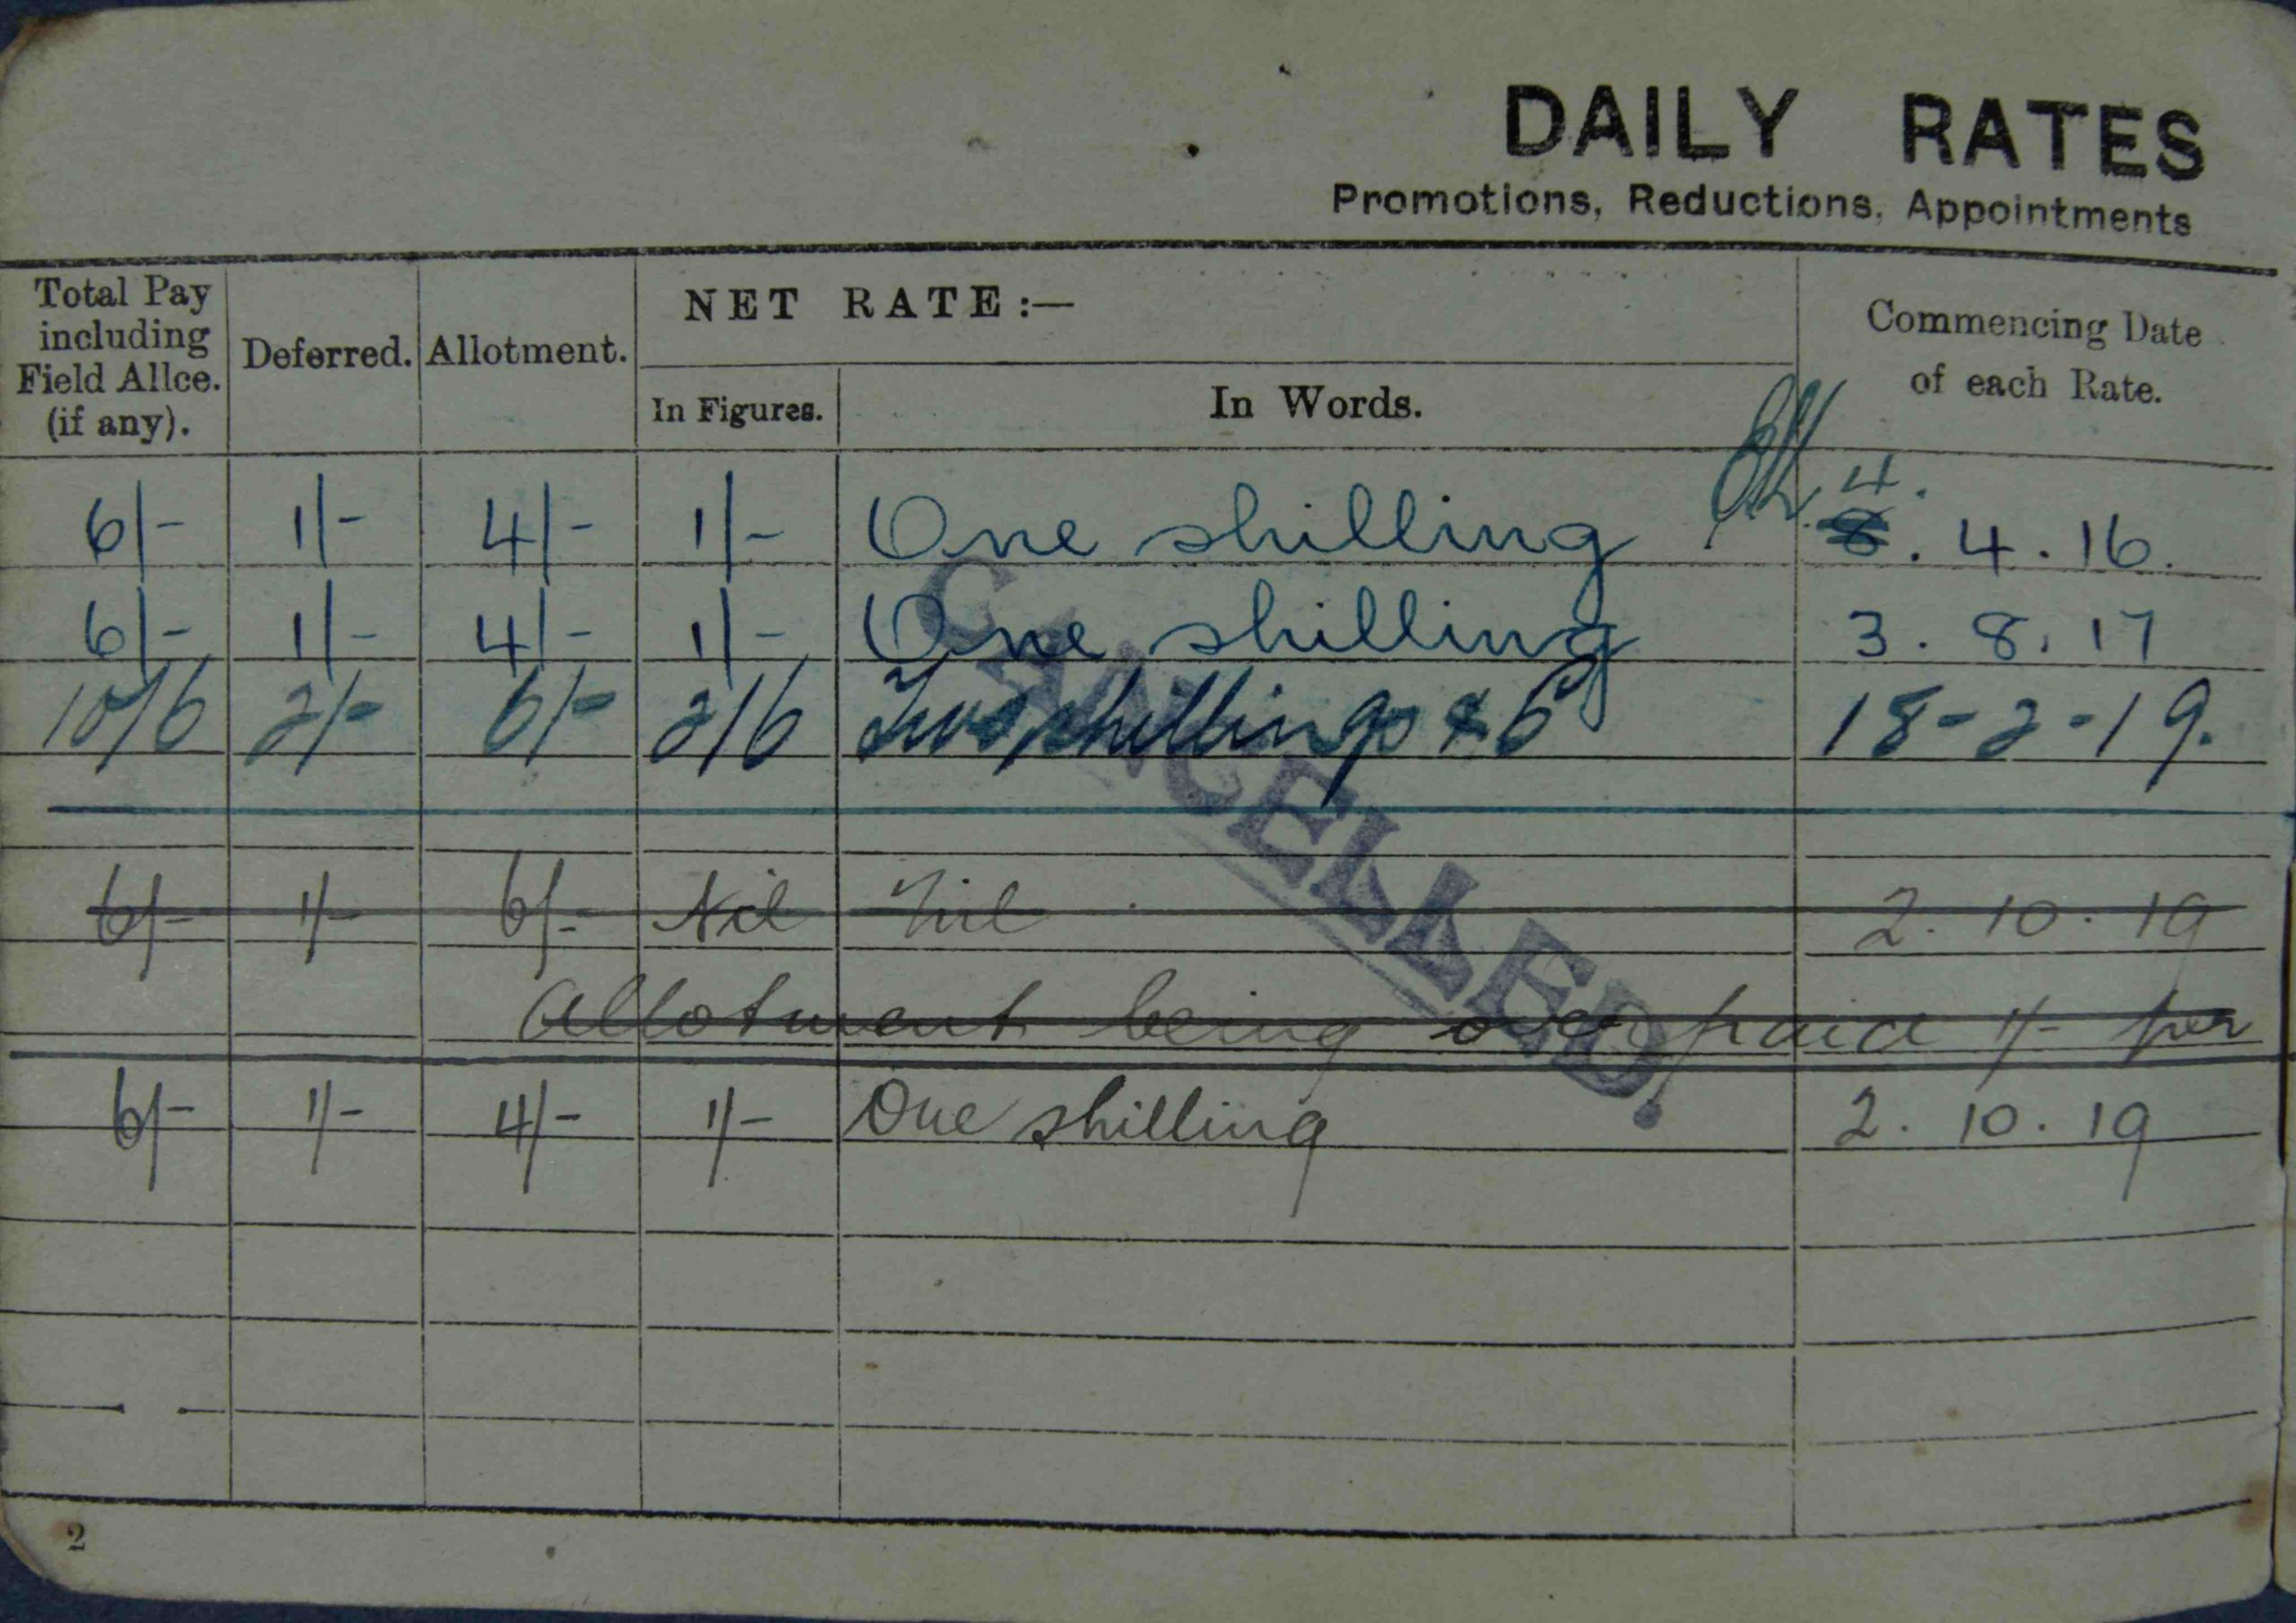 DAILY RATES
Promotions, Reductions, Appointments
Total Pay including Field Allce. (if any).
Deferred.
Allotment.
NET RATE :—
In Figures.
In Words.
Commencing Date of each Rate.
6/- 1/- 4/- 1/- One shilling 4. 8. 4. 16.
6/- 1/- 4/- 1/- One shilling 3. 8. 17
10/6 2/- 6/- 2/6 Two shillings & 6 18-2-19.
6/- 1/- 6/- Nil Nil 2. 10. 19
Allotment being over paid 1/- per
6/- 1/- 4/- 1/- One shilling 2. 10. 19
CANCELLED.
2